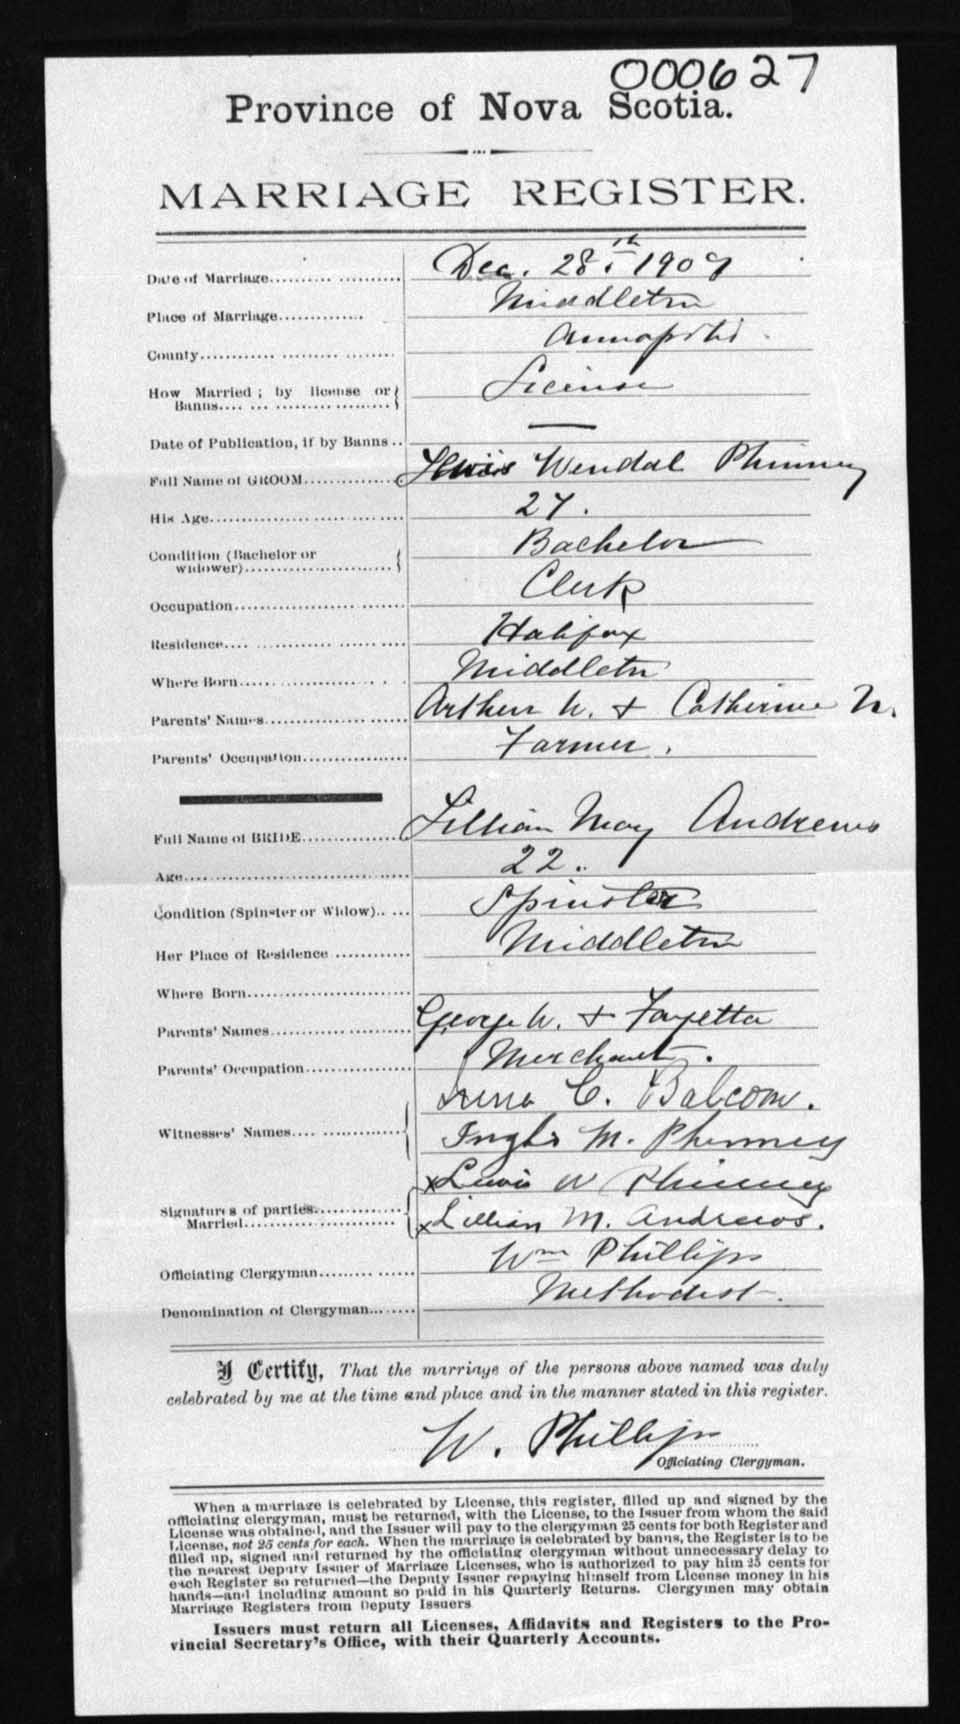 000627
Province of Nova Scotia.
MARRIAGE REGISTER.
Date of Marriage.................. Dec. 28th 1909
Place of Marriage............. Middleton
County.......................... Annapolis
How Married ; by license or
Banns.................... License
Date of Publication, if by Banns .. —
Full Name of GROOM.............. Lewis Wendal Phinney
His Age............................. 27.
Condition (Bachelor or
widower)...................... Bachelor
Occupation......................... Clerk
Residence.......................... Halifax
Where Born...................... Middleton
Parents' Names..................... Arthur W. & Catherine N.
Parents' Occupation................. Farmer.
Full Name of BRIDE.............. Lillian May Andrews
Age.................................. 22.
Condition (Spinster or Widow)...... Spinster
Her Place of Residence ............ Middleton
Where Born........................
Parents' Names..................... George W. & Fayetta
Parents' Occupation................ Merchant.
Witnesses' Names................. C. Balcom.
M. Phinney
Signatures of parties..............
Married......................
x Lewis W Phinney
x Lillian M. Andrews.
Officiating Clergyman............... Wm Phillips
Denomination of Clergyman........ Methodist.
I Certify, That the marriage of the persons above named was duly
celebrated by me at the time and place and in the manner stated in this register.
W. Phillips
Officiating Clergyman.
When a marriage is celebrated by License, this register, filled up and signed by the
officiating clergyman, must be returned, with the License, to the Issuer from whom the said
License was obtained, and the Issuer will pay to the clergyman 25 cents for both Register and
License, not 25 cents for each. When the marriage is celebrated by banns, the Register is to be
filled up, signed and returned by the officiating clergyman without unnecessary delay to
the nearest Deputy Issuer of Marriage Licenses, who is authorized to pay him 25 cents for
each Register so returned—the Deputy Issuer repaying himself from License money in his
hands—and including amount so paid in his Quarterly Returns. Clergymen may obtain
Marriage Registers from Deputy Issuers
Issuers must return all Licenses, Affidavits and Registers to the Pro-
vincial Secretary's Office, with their Quarterly Accounts.